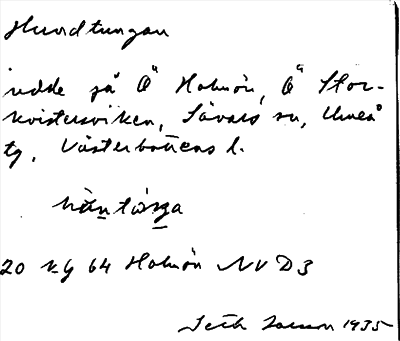 Hundtungan
udde på Ö Holmön, Ö Stor-
kvistersviken, Sävars sn, Umeå
tg, Västerbottens l.
20 kg 64 Holmön NV D3
Seth 1935